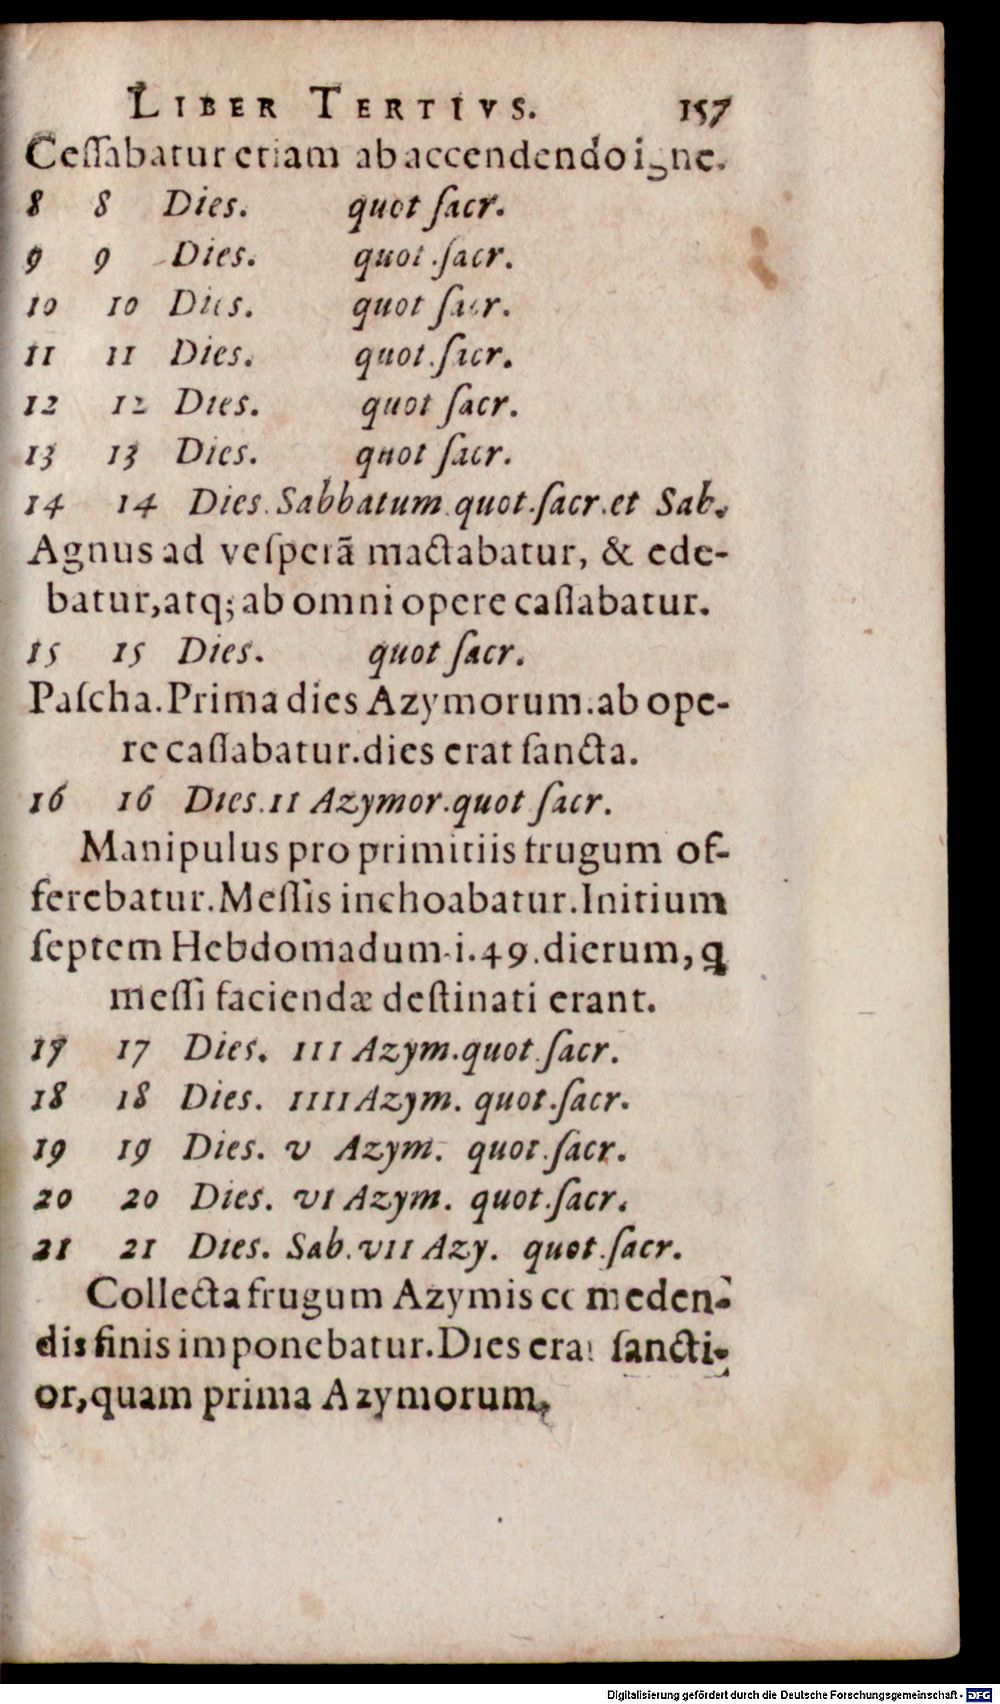 LIBER TERTIVS. 157
Ceſſabatur etiam ab accendendo igne.
8 8 Dies. quot ſacr.
9 9 Dies. quot .ſacr.
10 10 Dies. quot ſacr.
11 11 Dies. quot.ſacr.
12 12 Dies. quot ſacr.
13 13 Dies. quot ſacr.
14 14 Dies. Sabbatum quot.ſacr.et Sab.
Agnus ad veſperã mactabatur, & ede-
batur,atq; ab omni opere caſſabatur.
15 15 Dies. quot ſacr.
Paſcha. Prima dies Azymorum.ab ope-
re caſſabatur.dies erat ſancta.
16 16 Dies.11 Azymor.quot ſacr.
Manipulus pro primitiis frugum of-
ferebatur. Meſſis inchoabatur. Initium
ſeptem Hebdomadum.i.49.dierum, q
meſſi faciendæ deſtinati erant.
17 17 Dies. 111 Azym.quot ſacr.
18 18 Dies. 1111 Azym. quot.ſacr.
19 19 Dies. v Azym. quot.ſacr.
20 20 Dies. v1 Azym. quot.ſacr.
21 21 Dies. Sab.v11 Azy. quot.ſacr.
Collecta frugum Azymis comeden-
dis finis imponebatur. Dies erat ſancti-
or, quam prima Azymorum.
Digitalisierung gefördert durch die Deutsche Forschungsgemeinschaft - DFG